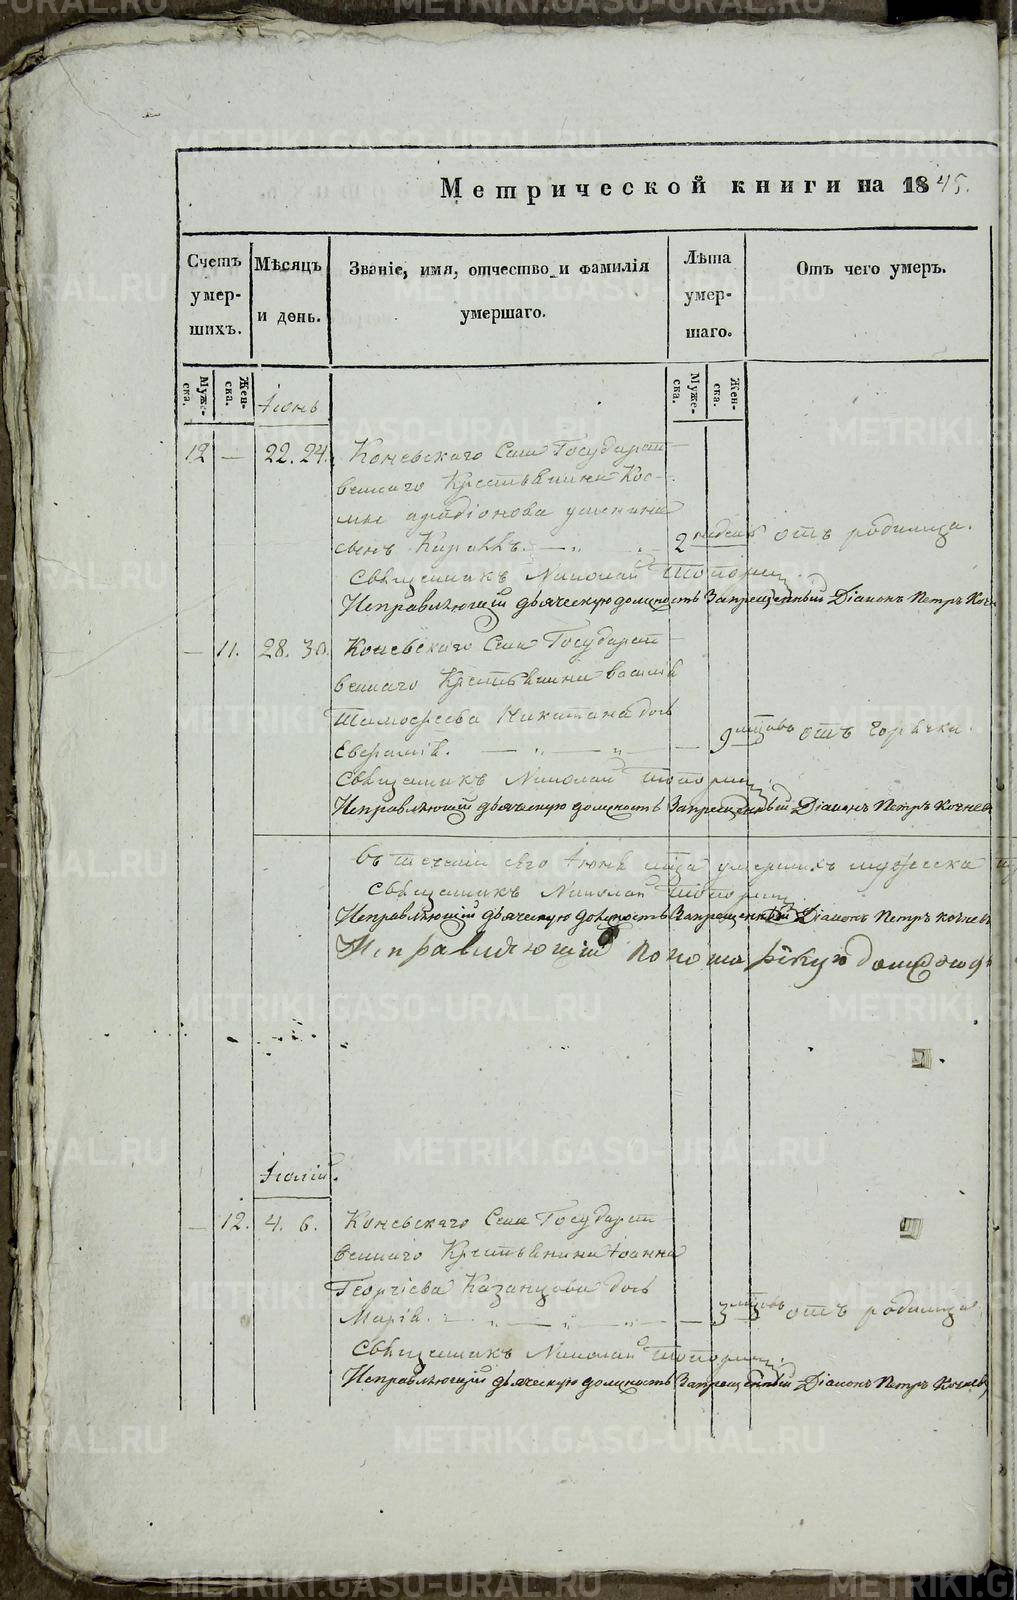 Метрической книги на 1845.
Счетъ умер-шихъ.
Мѣсяцъ и день.
Званіе, имя, отчество и фамилія умершаго.
Лѣта умер-шаго.
Отъ чего умеръ.
Муже-ска.
Жен-ска.
Муже-ска.
Жен-ска.
Іюнь
12 — 22. 24. Коневскаго Села Государст-
веннаго Крестьянина Кос-
мы
сынъ 2 недель отъ родимца.
Священникъ Николай Топорищ
Исправляющій дьяческую должность Запрещенный Діаконъ Петръ Кочн
— 11. 28. 30. Коневскаго Села Государст-
веннаго Крестьянина Василія
Тимофеева Никитина дочь
Евфимія. — „ — „ — 9 мцовъ отъ горячки.
Священникъ Николай Топорищ
Исправляющій дьяческую должность Запрещенный Діаконъ Петръ Кочнев
Въ теченіи сего Іюня мца умершихъ мужеска
Священникъ Николай Топорищ
Исправляющій дьяческую должность Запрещенный Діаконъ Петръ Кочнев
Исправляющій пономарскую должность
Іюлій.
— 12. 4. 6. Коневскаго Села Государст-
веннаго Крестьянина Іоанна
Георгіева Казанцова дочь
Марія. — „ — „ — „ — 3 мцовъ отъ родимца
Священникъ Николай Топорищ
Исправляющій дьяческую должность Запрещенный Діаконъ Петръ Кочнев
METRIKI.GASO-URAL.RU